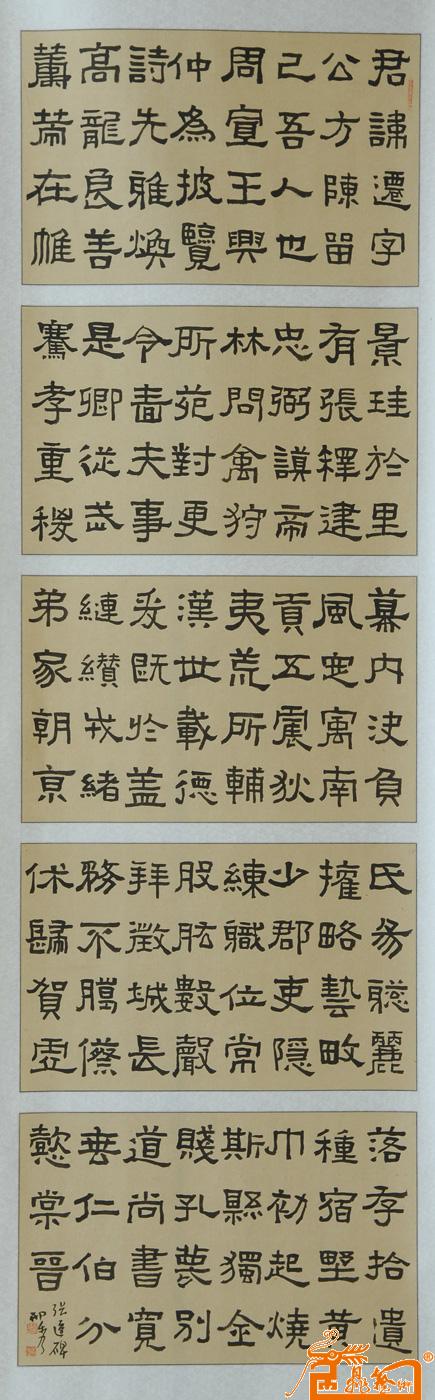 君諱遷字
公方陳留
己吾人也
周宣王興
仲為披覽
詩先雅煥
高龍良善
籌策在帷
景珪於里
有張釋建
忠弼謨帝
林問禽狩
所苑對更
令嗇夫事
是卿從武
騫孝重稷
幕內決負
風忠寓南
貢五震狄
夷荒所輔
漢世載德
爰既於蓋
纏纘戎緒
弟家朝京
氏易聰麗
擁略藝畋
少郡吏隱
練職位常
股肱數聲
拜徵城長
務不臘傺
休歸賀虛
落存拾遺
種宿墅黃
巾初起燒
斯縣獨全
賤孔蔑別
道尚書寬
垂仁伯分
懿棠晉
張遷碑